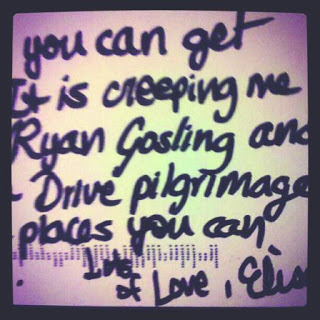 you can get
It is creeping me
Ryan Gosling and
Drive pilgrimage
places you can
Lots
of Love, Elis